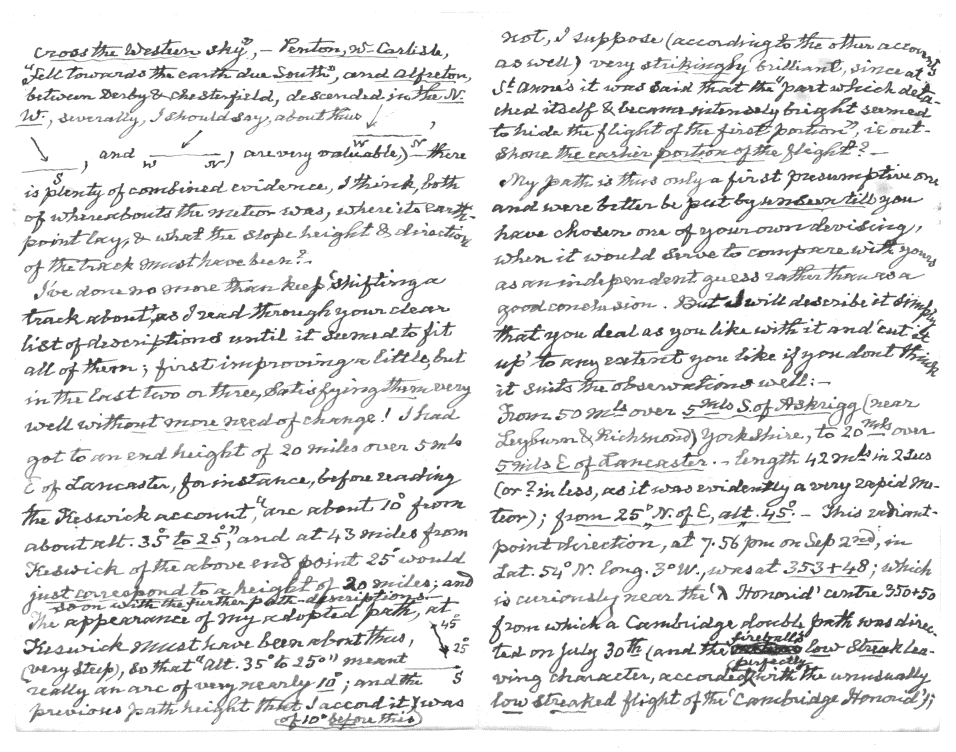 cross the Western sky", – Penton, W– Carlisle,
"Fell towards the earth due South", and Alfreton,
between Derby & Chesterfield, descended in the N.
W., severally, I should say, about thus
W N ,
S , and W N , are very valuable,) – there
is plenty of combined evidence, I think, both
of whereabouts the meteor was, where its earth-
point lay, & what the slope height & direction
of the track must have been? –
I've done no more than keep 'shifting a
track about', as I read through your clear
list of descriptions until it seemed to fit
all of them; first improving a little, but
in the last two or three, satisfying them very
well without more need of change! I had
got to an end height of 20 miles over 5 mls
E of Lancaster, for instance, before reading
the Keswick account, "arc about 10° from
about alt. 35° to 25°", and at 43 miles from
Keswick of the above end point 25° would
just correspond to a height of 20 miles; and
so on with the further path-descriptions –
The appearance of my adopted path, at
Keswick must have been about thus, 45°
(very steep), so that "Alt. 35° to 25°" meant 25°
really an arc of very nearly 10°; and the S
previous path height that I accord it was
of 10° before this
not, I suppose (according to the other accounts
as well) very strikingly brilliant, since at
St. Anne's it was said that the "part which deta-
ched itself & became intensely bright seemed
to hide the flight of the first portion", ie out-
shone the earlier portion of the flight? –
My path is thus only a first presumptive one
and were better be put by unseen till you
have chosen one of your own devising,
when it would serve to compare with yours
as an independent guess rather than as a
good conclusion. But I will describe it simply
that you deal as you like with it and 'cut it
up' to any extent you like if you dont think
it suits the observations well: –
From 50 mls over 5 mls S. of Askrigg (near
Leyburn & Richmond) Yorkshire, to 20 mls over
5 mls E of Lancaster. – length 42 mls in 2 secs
(or ? in less, as it was evidently a very rapid me-
teor); from 25° N. of E, alt. 45°. – This radiant-
point direction, at 7.56 pm on Sep 2nd, in
Lat. 54° N. long. 3° W., was at 353 + 48; which
is curiously near the 'λ Honorid' centre 350 + 50
from which a Cambridge double path was direc-
ted on July 30th (and the fireball's low Streak lea-
ving character, accorded perfectly with the unusually
low streaked flight of the 'Cambridge Honorid');